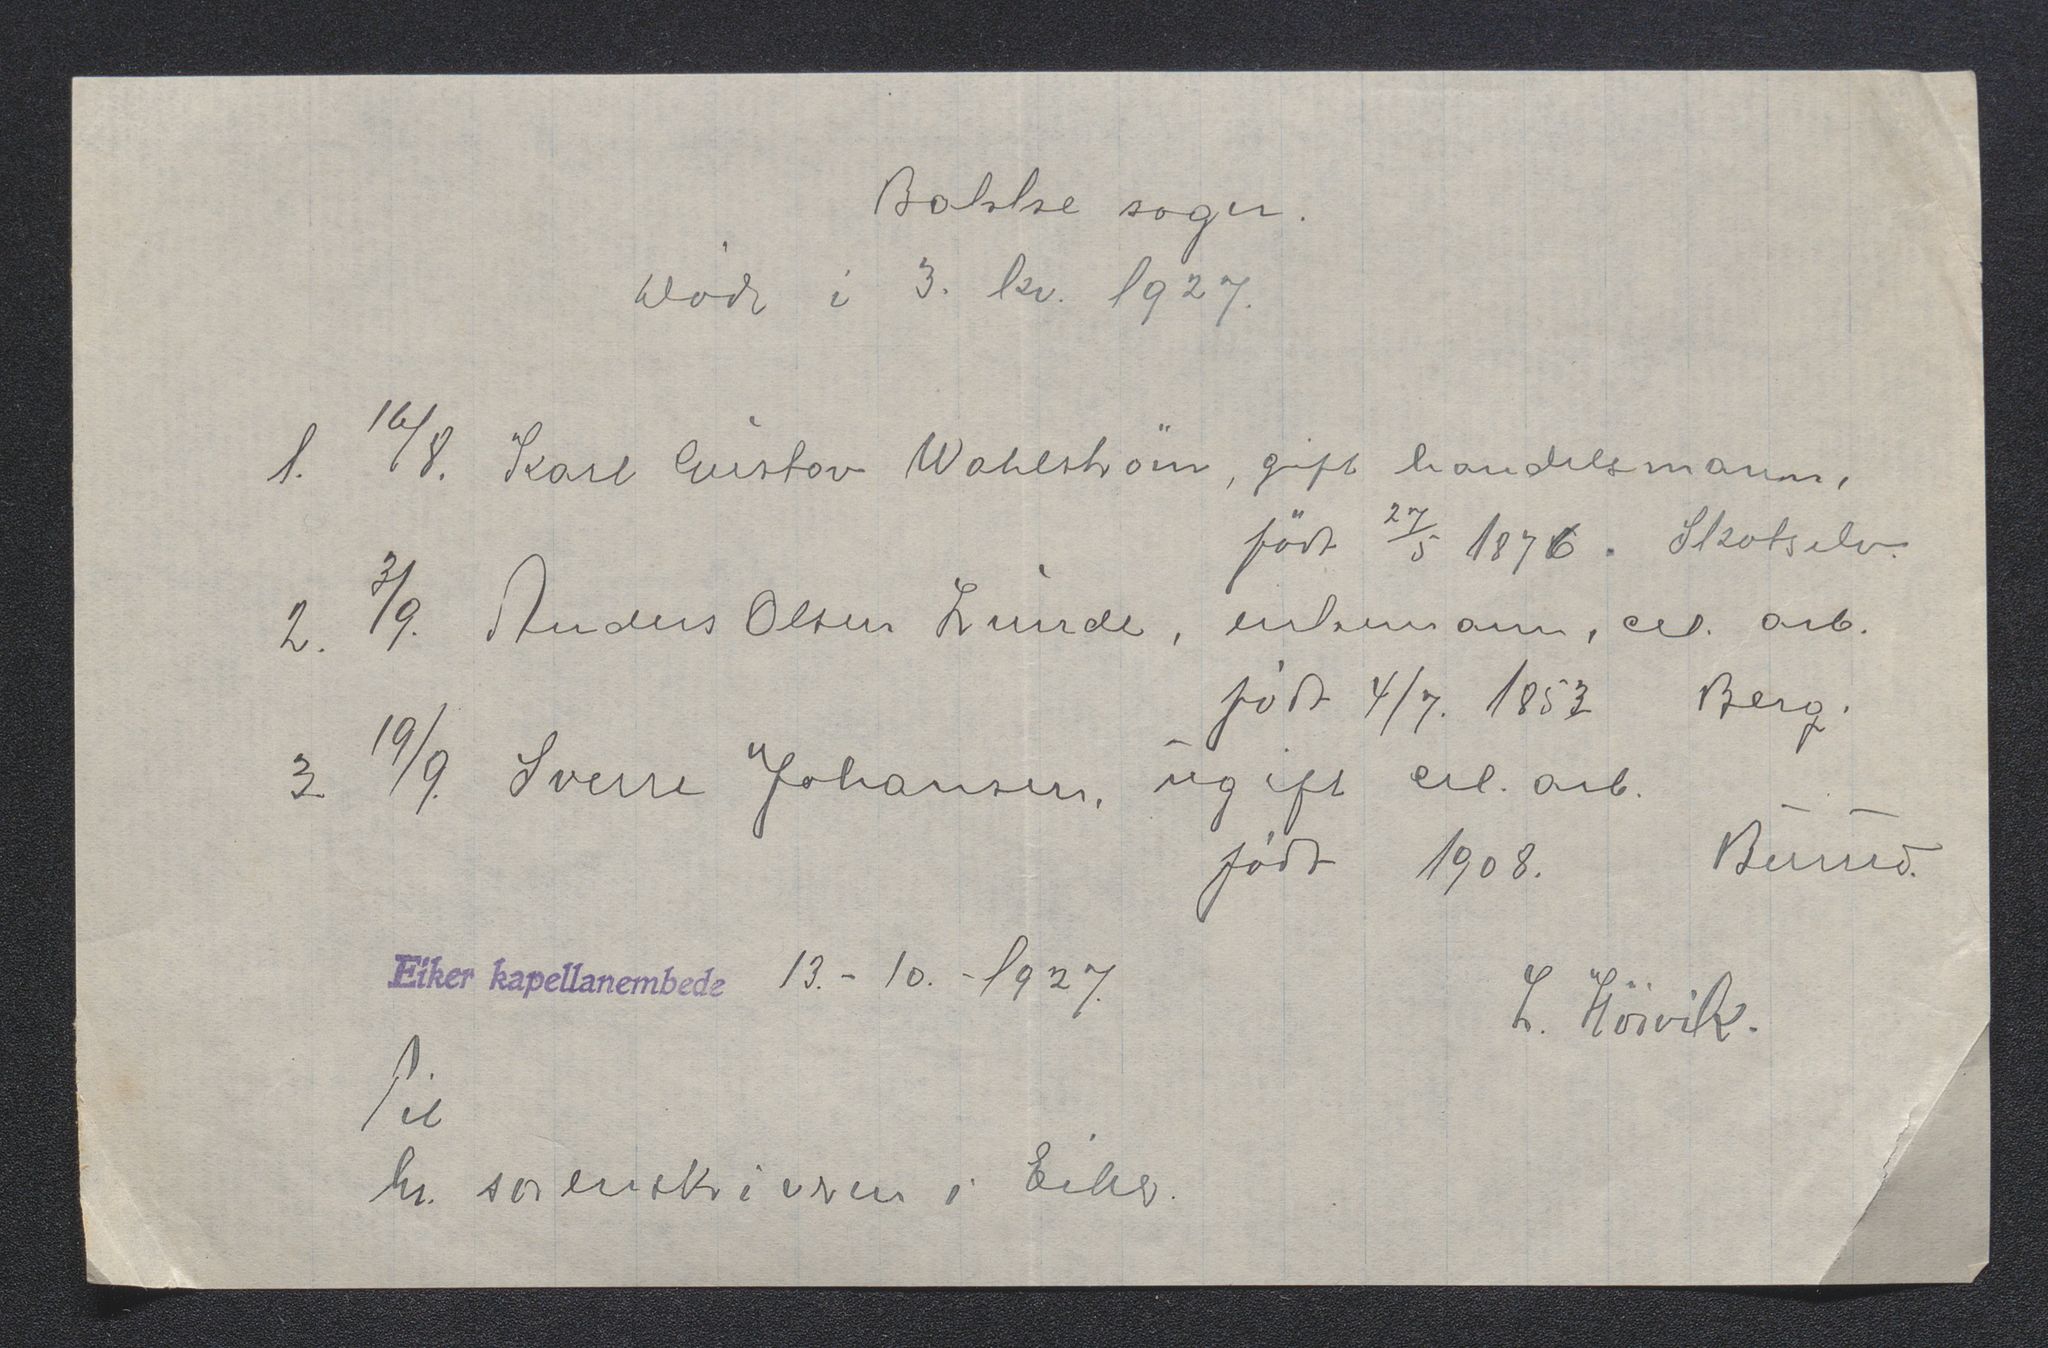 Bakke sogn.
Døde i 3. kv. 1927.
1. 16/8. Karl Gustav Wahlström, gift handelsmann,
född 27/5 1876. Skotselv.
2. 3/9. Anders Olsen Lunde, enkemann, arb.
född 4/7. 1853 Berg.
3. 19/9. Sverre Johansen, ugift arb.
född 1908. Burud.
Eiker kapellanembede 13.-10.-1927.
L. Hörvik.
Til
hr. sorenskriveren i Eiker.